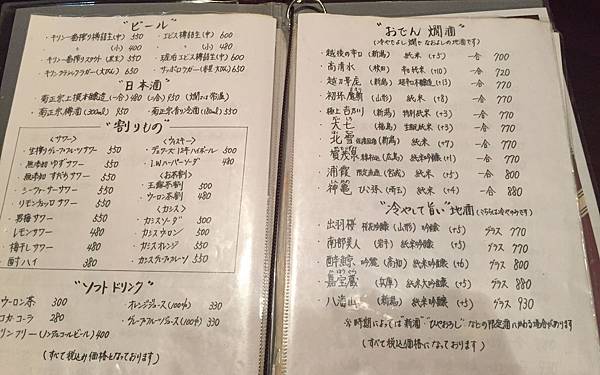 "ビール"
・キリン一番搾り樽詰生(中) 550
・〃 (小) 400
・キリン一番搾りスタウト(黒生) 550
・キリンクラシックラガー(大びん) 650
・エビス樽詰生(中) 600
・〃 (小) 480
・琥珀エビス樽詰生(中) 600
・サッポロラガー(赤星 大びん) 650
"日本酒"
・菊正宗上撰本醸造(一合) 480 (二合) 950 (燗 or 常温)
・菊正宗樽酒(300ml) 950
・菊正宗香の冷酒(180ml) 550
"割りもの"
<サワー>
・生搾りグレープフルーツサワー 550
・無添加 ゆずサワー 550
・無添加 すだちサワー 550
・シークヮーサーサワー 550
・リモンチェッロ サワー 550
・男梅サワー 550
・レモンサワー 480
・梅干しサワー 480
・酎ハイ 380
<ウィスキー>
・デュワーズ12年ハイボール 500
・I.W.ハーパーソーダ 480
<お茶割>
・玉露茶割 500
・ウーロン茶割 480
<カシス>
・カシスソーダ 500
・カシスウーロン 500
・カシスオレンジ 550
・カシスグレープフルーツ 550
"ソフトドリンク"
ウーロン茶 300
コカ・コーラ 280
リンフリー(ノンアルコールビール) 400
・オレンジジュース(100%) 330
・グレープフルーツジュース(100%) 330
(すべて税込み価格となっております)
"おでん 燗酒"
(冷やでよし 燗でなおよしの地酒です)
・越後の辛口 (新潟) 一合 700
・高清水 (秋田) (+10) 一合 720
・越乃寒庵 (新潟) 超辛口本醸造 (+13) 一合 770
・初孫 魔斬 (山形) 純米 (+8) 一合 770
・極上吉乃川 (新潟) 特別純米 (+3) 一合 770
・大七 (福島) 生酛純米 (+3) 一合 770
・北雪 (新潟) 純米 (+7) 一合 770
・賀茂泉 (広島) 純米吟醸 (+1) 一合 770
・浦霞 (宮城) 純米 (+1) 一合 880
・神亀 ひこ孫 (埼玉) 純米 (+6) 一合 880
"冷やして旨い"地酒
・出羽桜 (山形) 吟醸 (+5) グラス 770
・南部美人 (岩手) 純米吟醸 (+5) グラス 770
・酔鯨 吟麗 (高知) 純米吟醸 (+6) グラス 800
(兵庫) 純米吟醸 (+5) グラス 880
・八海山 (新潟) 純米吟醸 (+5) グラス 930
※時期によっては"新酒""ひやおろし"などの限定酒に
(すべて税込価格になっております)